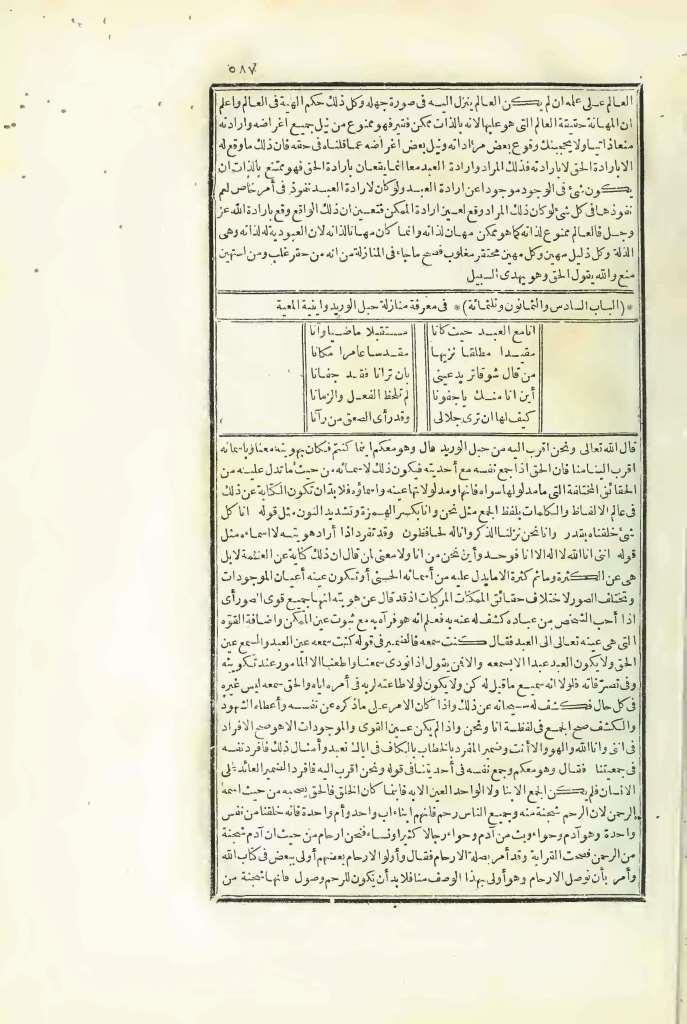 ٥٨٧
العالم على علمه ان لم يكن العالم ينزل اليه فى صورة جهله وكل ذلك حكم الهبة فى العالم واعلم
ان المهانة حقيقة العالم التى هو عليها لانه بالذات ممكن فقير فهو ممنوع من نيل جميع أغراضه وارادته
منعا ذاتيا ولا يحجبنك وقوع بعض مراداته ونيل بعض أغراضه عما قلناه فى حقه فان ذلك ما وقع له
الا بارادة الحق لا بارادته فذلك المراد وارادة العبد معا انما يقعان بارادة الحق فهو ممتنع بالذات ان
يكون شئ فى الوجود موجودا عن ارادة العبد ولو كان لارادة العبد نفوذ فى أمر خاص لعم
نفوذها فى كل شئ لو كان ذلك المراد وقع لعين ارادة الممكن فتعين ان ذلك الواقع وقع بارادة الله عز
وجل فالعالم ممنوع لذاته كما هو ممكن مهان لذاته وانما كان مهانا لذاته لان العبودية له لذاته وهى
الذلة وكل ذليل مهين وكل مهين محتقر مغلوب فصح ما جاء فى المنازلة من انه من حقر غلب ومن استهين
منع والله يقول الحق وهو يهدى السبيل
* (الباب السادس والثمانون وثلثمائة) * فى معرفة منازلة حبل الوريد وأينية المعية
انا مع العبد حيث كانا مستقبلا ماضيا وآنا
مقيدا مطلقا نزيها مقدسا عامرا مكانا
من قال شوقا تريد عينى بان ترانا فقد جفانا
أين انا منك ياجفونا لم تلحظ الفعل والزمانا
كيف لها ان ترى جلالى وقد رأى الصعق من رآنا
قال الله تعالى ونحن اقرب اليه من حبل الوريد قال وهو معكم اينما كنتم فكان بهويته معنا وباسمائه
اقرب الينا منا فان الحق اذا جمع نفسه مع أحديته فيكون ذلك لاسمائه من حيث ما تدل عليه من
الحقائق المختلفة التى ما مدلولها سواه فانها ومدلولاتها عينه واسماؤه فلا بد ان تكون الكتابة عن ذلك
فى عالم الالفاظ والكلمات بلفظ الجمع مثل نحن وانا بكسر الهمزة وتشديد النون مثل قوله انا كل
شئ خلقناه بقدر وانا نحن نزلنا الذكر وانا له لحافظون وقد تفرد اذا أراد هويته لا اسماءه مثل
قوله اننى انا الله لا اله الا انا فوحد وأين نحن من انا ولا معنى لمن قال ان ذلك كناية عن العظمة لا بل
هى عن الكثرة وما ثم كثرة الا ما يدل عليه من أسمائه الحسنى أو تكون عينه أعيان الموجودات
وتختلف الصور لاختلاف حقائق الممكنات المركبات اذ قد قال عن هويته انها جميع قوى الصور أى
اذا أحب الشخص من عباده كشف له عنه به فعلم انه هو فرآه به مع ثبوت عين الممكن واضافة القوة
التى هى عينه تعالى الى العبد فقال كنت سمعه فالضمير فى قوله كنت سمعه عين العبد والسمع عين
الحق ولا يكون العبد عبدا الا بسمعه والا فمن يقول اذا نودى سمعنا واطعنا الا المأمور عند تكوينه
وفى تصرفاته فلولا انه سميع ما قيل له كن ولا يكون لولا طاعته لربه فى أمره اياه والحق سمعه ليس غيره
فى كل حال فكشف له سبحانه عن ذلك واذا كان الامر على ما ذكره عن نفسه وأعطاه الشهود
والكشف صح الجمع فى لفظة انا ونحن واذا لم يكن عين القوى والموجودات الا هو صح الافراد
فى اننى وانا الله والهو والأنت وضمير المفرد بالخطاب بالكاف فى اياك نعبد وأمثال ذلك فافرد نفسه
فى جمعيتنا فقال وهو معكم وجمع نفسه فى أحديتنا فى قوله ونحن اقرب اليه فافرد الضمير العائد على
الانسان فلم يكن الجمع الا بنا ولا الواحد العين الا به فاينما كان الخلق فالحق يصحبه من حيث اسمه
الرحمن لان الرحم شجنة منه وجميع الناس رحم فانهم ابناء اب واحد وأم واحدة فانه خلقنا من نفس
واحدة وهو آدم وحواء وبث من آدم وحواء رجالا كثيرا ونساء فنحن ارحام من حيث ان آدم شجنة
من الرحمن فصحت القرابة وقد أمر بصلة الارحام فقال وأولوا الارحام بعضهم أولى ببعض فى كتاب الله
وأمر بأن نوصل الارحام وهو أولى بهذا الوصف منا فلا بد أن يكون للرحم وصول فانها شجنة من